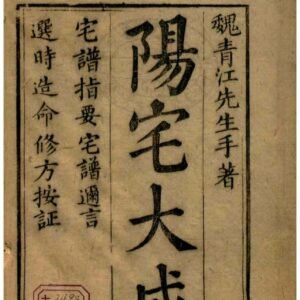 魏青江先生手著
陽宅大成
宅譜指要宅譜邇言
選時造命修方按証